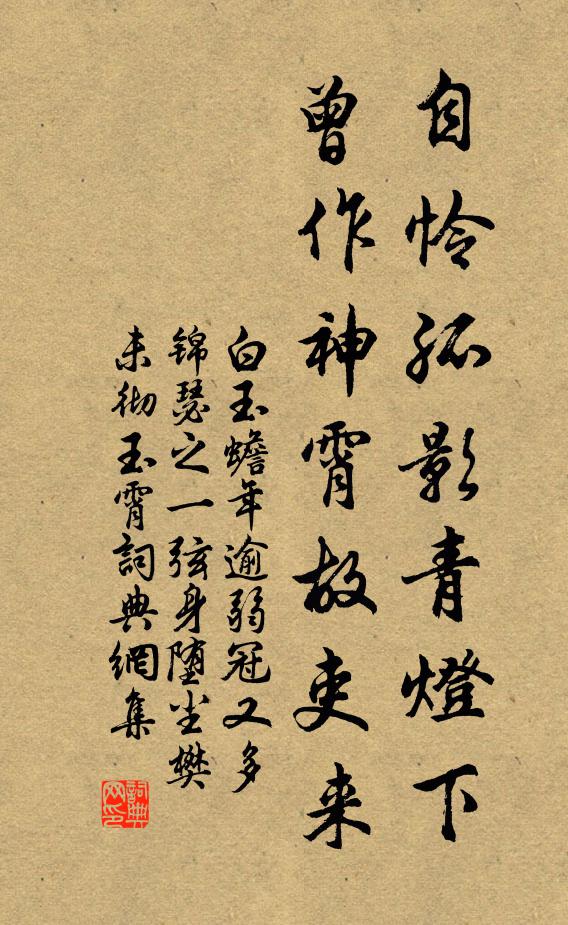 自怜孤影青燈下
曾作神霄故吏来
白玉蟾年逾弱冠又多
锦瑟之一弦身堕尘樊
未彻玉霄詞典網集
詞典网印